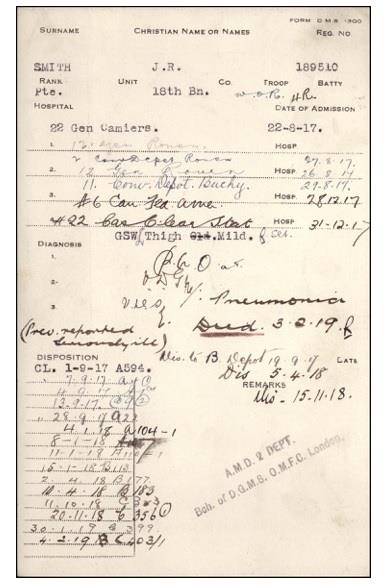 FORM D.M.S. 1300
SURNAME CHRISTIAN NAME OR NAMES REG. NO
SMITH J.R. 189510
RANK UNIT CO. TROOP BATTY
Pte. 18th Bn. W.O.R. HR.
HOSPITAL DATE OF ADMISSION
22 Gen Camiers. 22-8-17.
1. 12 Gen Rouen HOSP
2 Conv Depot Rouen 27.8.17.
2. 12 Gen Rouen HOSP 26.8.17
11. Conv. Depot. Buchy. 29.8.17.
3. #6 Can Fld Amb. HOSP 28.12.17
#22 Cas Clear Stat HOSP 31-12-17
GSW Thigh Mild.
DIAGNOSIS
1.
2.
3. Pneumonia
(Prev. reported Died. 3-2-19.
Seriously ill)
DISPOSITION Dis. to B. Depot 19.9.17 DATE
CL. 1-9-17 A594. Dis 5-4-18
REMARKS
7-9-17 Dis - 15-11-18.
13-9-17
" 28-9-17
4-1-18 A104-1
8-1-18
11-1-18
15-1-18
2-4-18 B177.
10-4-18 B183
11-10-18
20-11-18 356
30-1-19 399.
4-2-19 403/1
A.M.D. 2 DEPT.
Bch. of D.G.M.S. O.M.F.C. London.